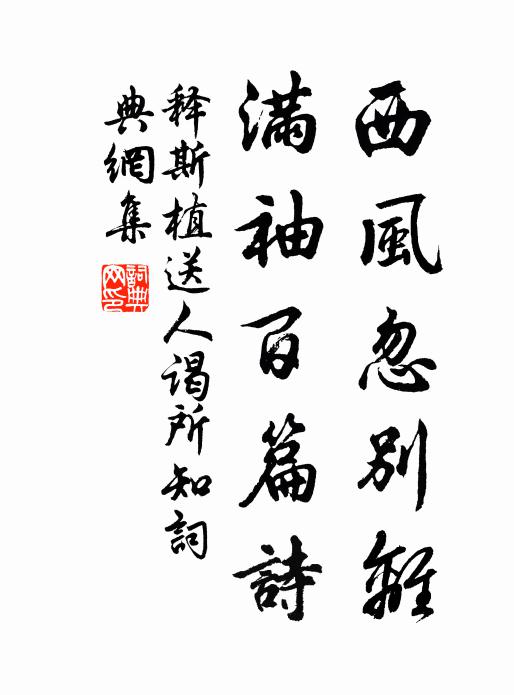 西風忽别離
滿袖百篇詩
释斯植送人谒所知詞
典網集
詞典
网印